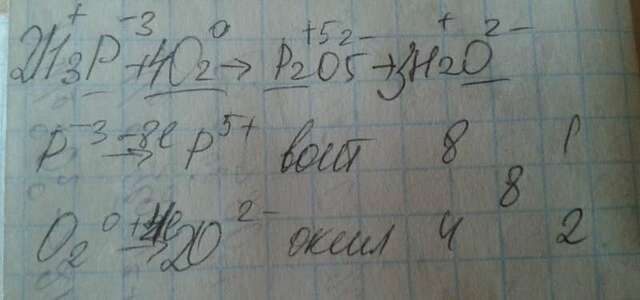 2H₃⁺P⁻³ + 4O₂⁰ → P₂⁺⁵O₅²⁻ + 3H₂⁺O²⁻
P⁻³ -8e → P⁵⁺ восст 8 1
8
O₂⁰ +4e → 2O²⁻ окисл 4 2